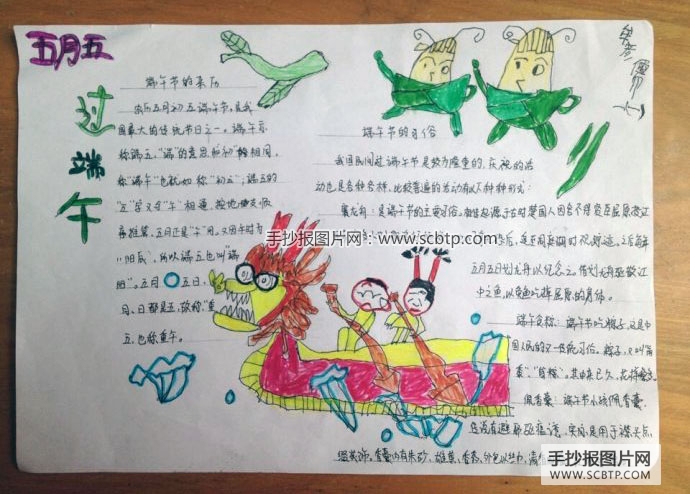 五月五
过
端
午
端午节的来历
农历五月初五端午节，是我
国最大的传统节日之一。端午亦
称端五，“端”的意思和“初”相同，
称“端午”也就如称“初五”；端五的
“五”字又与“午”相通，按地支顺
序推算，五月正是“午”月。又因午时为
“阳辰”，所以端五也叫“端
阳”。五月五日，
月、日都是五，故称“重
五，也称重午。
端午节的习俗
我国民间过端午节是较为隆重的，庆祝的活
动也是各种各样，比较普遍的活动有以下种种形式：
赛龙舟：是端午节的主要习俗。相传起源于古时楚国人因舍不得贤臣屈原投江
手抄报图片网：www.scbtp.com
之后每年
五月五日划龙舟以纪念之。借划龙舟驱散江
中之鱼，以免鱼吃掉屈原的身体。
端午食粽：端午节吃粽子，这是中
国人民的又一传统习俗。粽子，又叫“角
黍”、“筒粽”。其由来已久，花样繁多。
佩香囊：端午节小孩佩香囊，
传说有避邪驱瘟之意，实际是用于襟头点
缀装饰。香囊内有朱砂、雄黄、香药，外包以丝布，清
手抄报图片网
SCBTP.COM